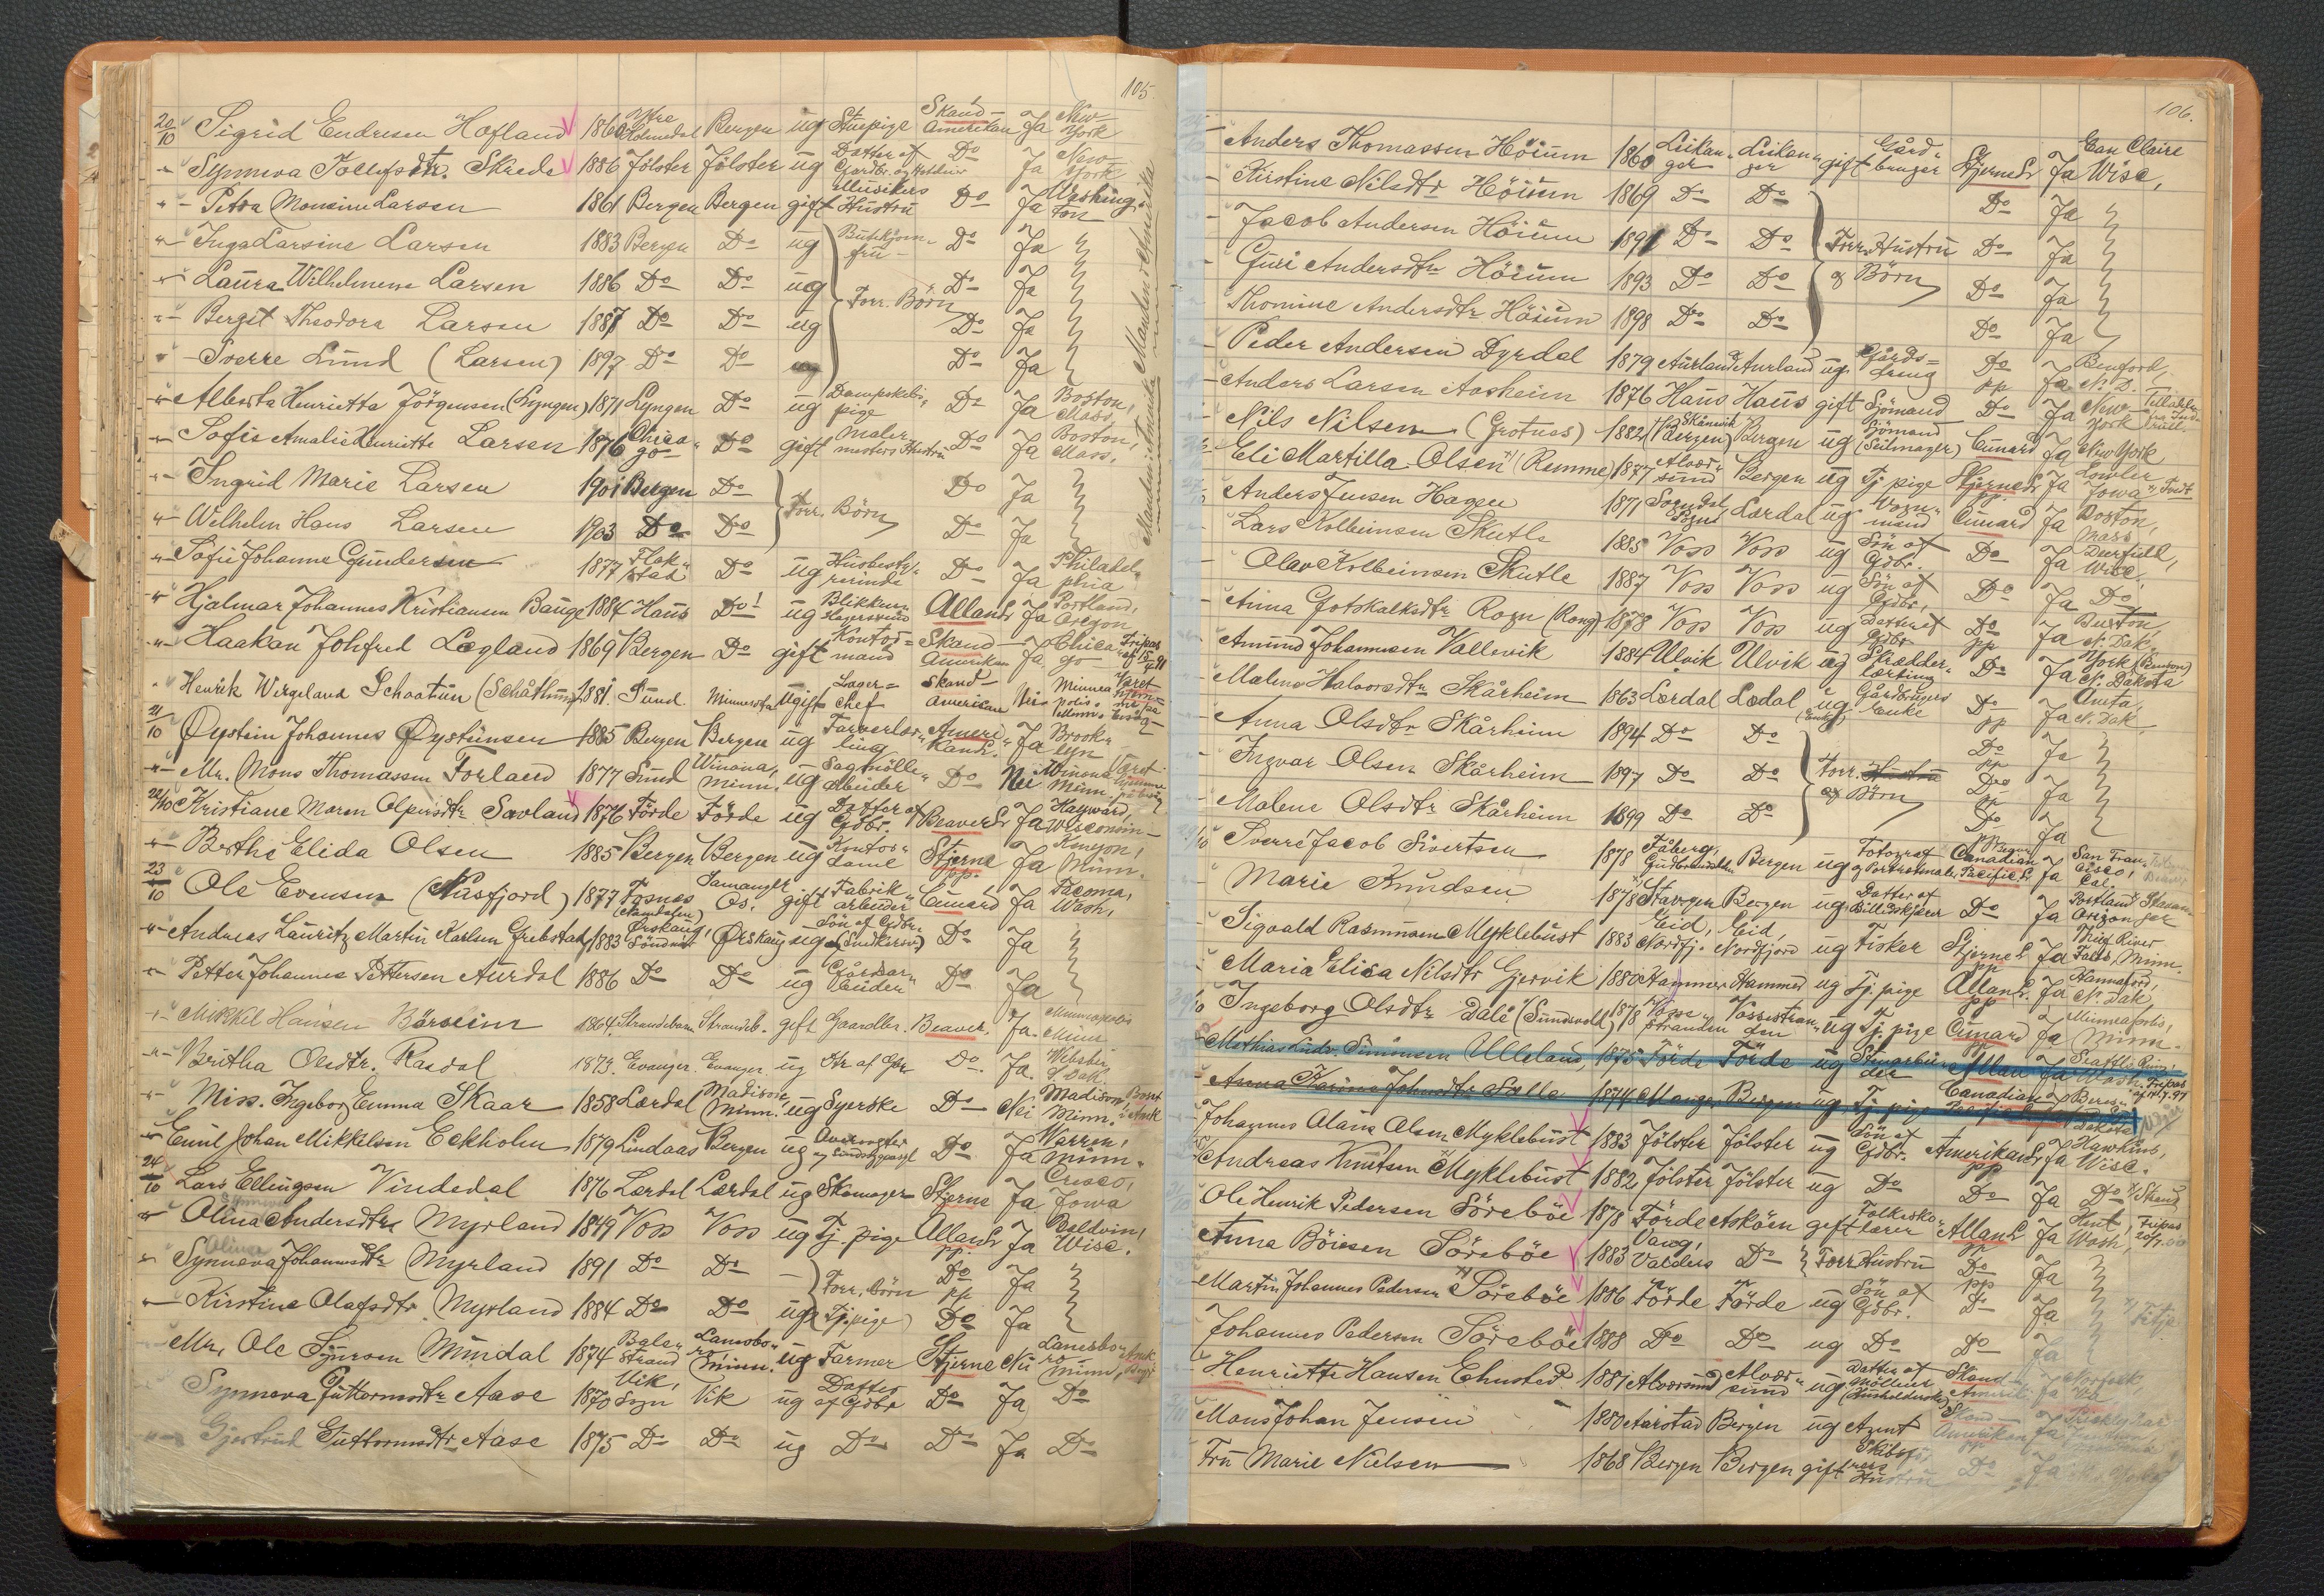 105.
20/10 Sigrid Endresen Hofland 1860 Ytre Holmedal Bergen ug Stuepige Skand- Amerikan Ja New- York
"- Synneva Tollefsdtr. Skrede 1886 Jölster Jölster ug Datter af Gardbr. Do Ja New- York
"- Petra Monsine Larsen 1861 Bergen Bergen gift Musikers Hustru Do Ja Washington
"- Inga Larsine Larsen 1883 Bergen Do ug Do Ja "
"- Laura Wilhelmene Larsen 1886 Do Do ug Forr. Börn Do Ja "
"- Bergit Theodora Larsen 1887 Do Do ug Do Ja "
"- Sverre Lund (Larsen) 1897 Do Do Do Ja "
"- Alberta Henrietta Jörgensen (Lyngen) 1871 Lyngen Do ug pige Do Ja Boston, Mass.
"- Sofie Amalie Henriette Larsen 1876 Chicago Do gift Malermesters Hustru Do Ja Boston, Mass.
"- Ingrid Marie Larsen 1901 Bergen Do Forr. Börn Do Ja "
"- Wilhelm Hans Larsen 1903 Do Do Do Ja "
"- Sofie Johanne Gundersen 1877 Flakstad Do ug Husbestyrerinde Do Ja Philadelphia
"- Hjalmar Johannes Kristiansen Bauge 1884 Haus Do ug Allan L Ja Portland, Oregon
"- Haakan Johfred Lægland 1869 Bergen Do gift Kontormand Skand- Amerikan Ja Chicago
Henrik Wergeland Schaatun 1881. Sund Minnesota Ugift Lager- chef Skand- American Nei Minneapolis Minn.
21/10 Øystein Johannes Øysteinsen 1885 Bergen Bergen ug Farverlærling Amerikans. Ja Brooklyn
"- Mr. Mons Thomassen Forland 1877 Sund Winona, Minn. ug Sagmölle arbeider Do Nei Winona Minn.
22/10 Kristiane Maren Olpersdtr Savland 1876 Förde Förde ug Datter af Gdbr. Beaver L Ja Hayward, Wisconsin-
"- Berthe Elida Olsen 1885 Bergen Bergen ug Kontor- dame Stjerne pp. Ja Kenyon, Minn.
23/10 Ole Evensen (Husfjord) 1877 Fosnes (Namdalen) Samanger Os. gift Fabrikarbeider Cunard Ja Tacoma, Wash,
"- Andreas Lauritz Martin Karlsen Grebstad 1883 Ørskaug, Söndmör Ørskaug ug Sön af Gdbr. (Snedkersv) Do Ja "
"- Petter Johannes Pettersen Aurdal 1886 Do Do ug Gårdarbeider Do Ja "
"- Mikkel Hansen Börseim 1864. Strandebarm Strandeb. gift Gaardbr. Beaver. Ja. Minneapolis Minn
"- Britha Olsdtr. Rasdal 1873. Evanger. Evanger. ug Dtr af Gbr Do. Ja. Webster S. Dak.
"- Miss. Ingeborg Emma Skaar 1858 Lærdal Madison, Minn. ug Syerske Do Nei Madison Minn.
"- Emil Johan Mikkelsen Eckholm 1879 Lindaas Bergen ug Do Ja Warren, Minn.
24/10 Lars Ellingsen Vindedal 1876 Lærdal Lærdal ug Skomager Stjerne Ja Cresco, Iowa
"- Olina Andersdtr Myrland 1849 Voss Voss ug Tj. pige Allan L pp. Ja Baldwin, Wisc.
"- Synneva Johannesdtr Myrland 1891 Do Do - Forr. Börn Do pp Ja "
"- Kirstine Olafsdtr. Myrland 1884 Do Do ug (Tj. pige) Do Ja "
Mr. Ole Sjursen Mundal 1874 Balestrand Lanesboro, Minn. ug Farmer Stjerne Nei Lanesboro Minn.
Synneva Guttormsdtr Aase 1870 Vik, Sogn Vik ug Datter af Gdbr Do Ja Do
"- Gjertrud Guttormsdtr Aase 1875 Do Do ug Do Do Ja Do
106.
Anders Thomassen Höium 1860 Leikanger Leikanger gift Gårdbruger Stjerne L Ja Eau Claire Wisc,
Kirstine Nilsdtr Höium 1869 Do Do Do Ja "
Jacob Andersen Höium 1891 Do Do Forr. Hustru Do Ja "
Guri Andersdtr Höium 1893 Do Do & Börn Do Ja "
Thomine Andersdtr Höium 1898 Do Do Do Ja "
Peder Andersen Dyrdal 1879 Aurland Aurland ug. Gårds- dreng Do pp Ja Benford, N. D.
Anders Larsen Aasheim 1876 Haus Haus gift Sjömand Do Ja New York
Nils Nilsen (Grotnes) 1882 Skånevik (Bergen) Bergen ug Sjömand (Seilmager) Cunard Ja New York
Eli Martilla Olsen (Remme) 1877 Alversund Bergen ug Tj pige Stjerne L pp. Ja Iowa
Anders Jensen Haggen 1871 Sogndal Sogn Lærdal ug Vognmand Cunard Ja Boston, Mass
Lars Kolbeinsen Skutle 1885 Voss Voss ug Sön af Gdbr. Do Ja Deerfield, Wisc.
Olav Kolbeinsen Skutle 1887 Voss Voss ug Sön af Gdbr, Do Ja Do
Anna Gotskalksdtr Rogn (Rong) 1878 Voss Voss ug Datter af Gdbr Do pp Ja Buxton, N. Dak.
Amund Johannesen Vallevik 1884 Ulvik Ulvik ug Skrædder- lærling Do Ja York (Benson) N. Dakota
Malena Halvorsdtr Skårheim 1863 Lærdal Lædal ug (Enke) Gårdbrugers Enke Do pp Ja Aneta, N. Dak
Anna Olsdtr Skårheim 1894 Do Do Do pp Ja "
Ingvar Olsen Skårheim 1897 Do Do Forr. Hustru & Börn Do pp Ja "
Malene Olsdtr Skårheim 1899 Do Do Do pp Ja
29/10 Sverre Jacob Sivertsen 1878 Fåberg, Gudbrandsdalen Bergen ug Fotograf og Portrætmaler Canadian Pacific L Ja San Francisco, Cal.
Marie Knudsen 1878 Stavanger Bergen ug Datter af Do Ja Portland Oregon
Sigvald Rasmussen Myklebust 1883 Eid, Nordfj. Eid, Nordfjord ug Fisker Stjerne L pp Ja Thief River Falls, Minn.
Maria Elisa Nilsdtr Gjervik 1880 Hammer Hammer ug Tj. pige Allan L. pp Ja Hannaford, N. Dak
30/10 Ingeborg Olsdtr Dale (Sundsvold) 1878 Vossestranden Vossestranden ug Tj. pige Cunard pp Ja Minneapolis, Minn.
Mathias Simonsen Ulleland, 1875 Förde Förde ug Allan Ja Seattle Wash.
Anna Karina Johnsdtr 1874 Manger Bergen ug Tj. pige Canadian Pacific
Johannes Olsen Myklebust 1883 Jölster Jölster ug Sön af Gdbr. Amerikan L pp Ja Hawkins, Wisc.
Andreas Knutsen Myklebust 1882 Jölster Jölster ug Do Do Ja Do
Ole Henrik Pedersen Söreböe 1878 Förde Askøen gift Folkeskolærer Allan L pp Ja Kent, Wash,
Anna Böiesen Söreböe 1883 Vang, Valders Do " Forr Hustru Do pp Ja "
Martin Johannes Pedersen Söreböe 1886 Förde Förde ug Sön af Gdbr. Do Ja "
Johannes Pedersen Söreböe 1888 Do Do ug Do Do Ja "
Henriette Hansen Ehnsted 1881 Alversund Alversund ug Datter af Möller (Husholderske) Skand- Amerik. Ja Norfolk,
Mons Johan Jensen 1880 Aarstad Bergen ug Agent Skand- Amerikan pp Ja
Fru Marie Nielsen 1868 Bergen Bergen gift Hustru Do Ja